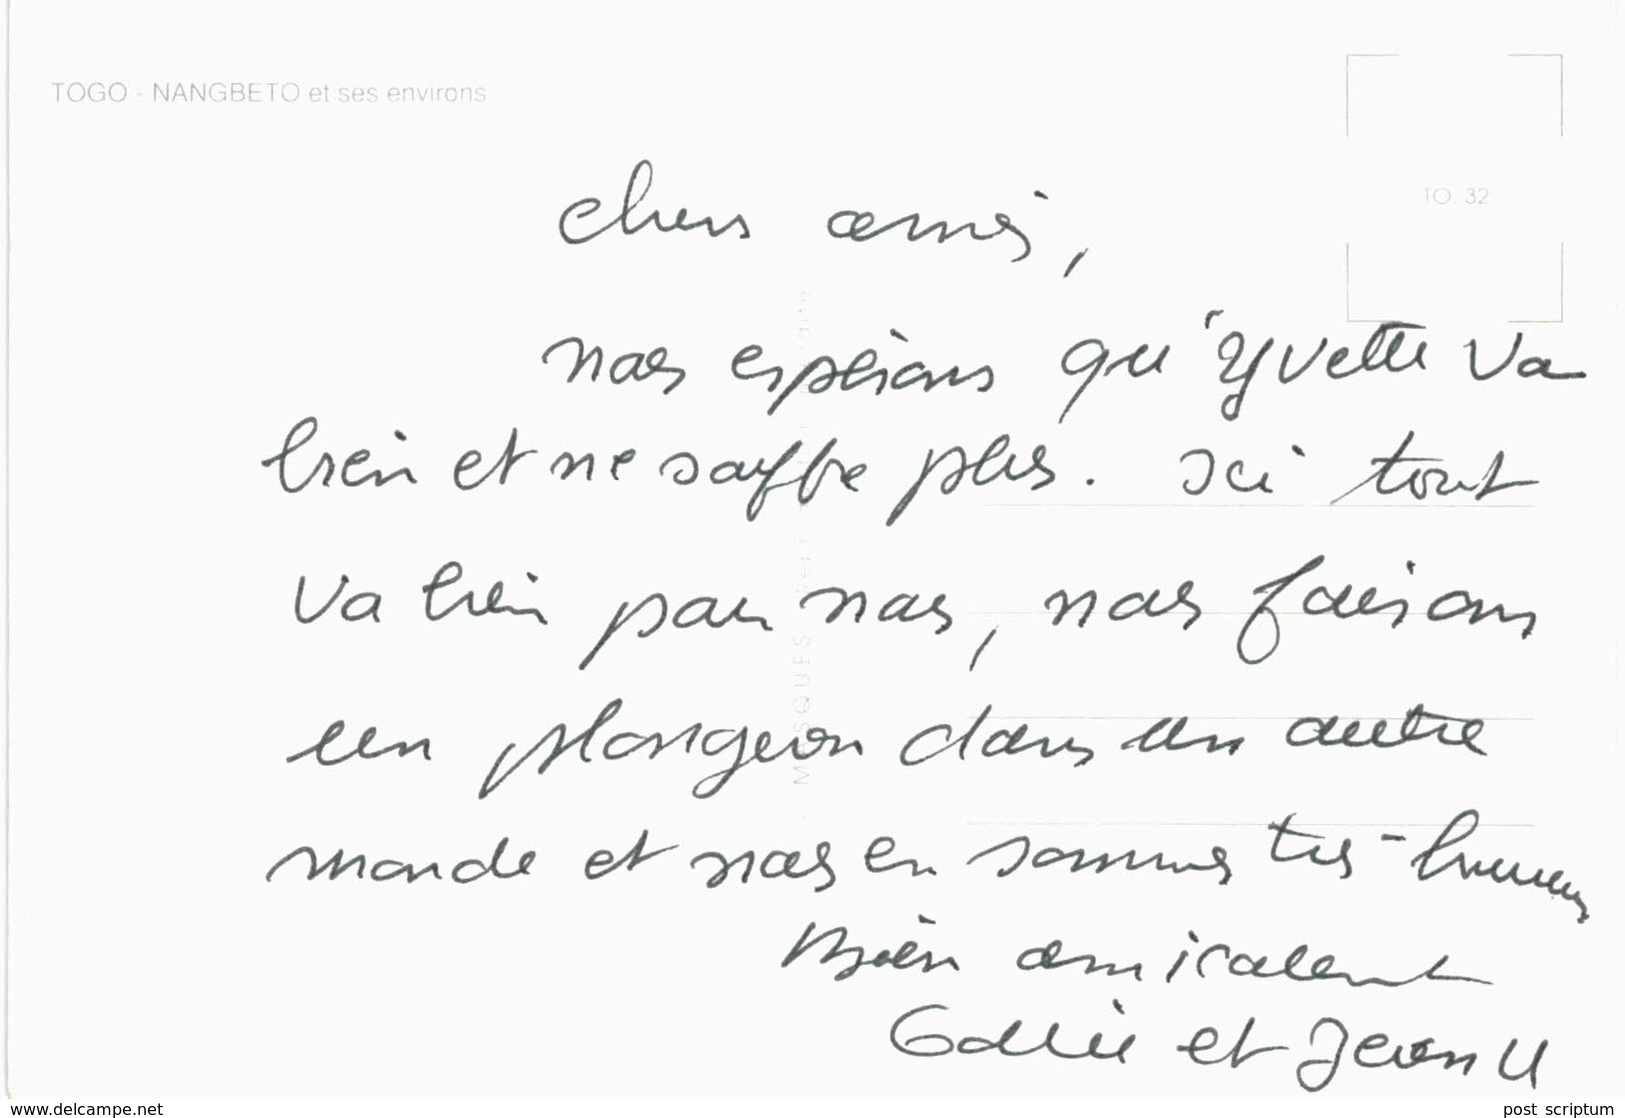 TOGO - NANGBETO et ses environs
TO 32
chers amis,
nous espérons qu'Yvette va
bien et ne souffre plus. Ici tout
va bien pour nous, nous faisons
un plongeon dans un autre
monde et nous en sommes très-heureux
MASQUES
Bien amicalement
et Jean
www.delcampe.net
post_scriptum